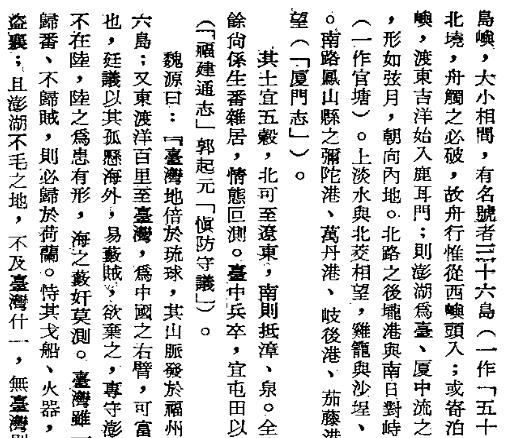 島嶼，大小相間，有名號者三十六島（一作「五十
北境，舟觸之必破，故舟行惟從西嶼頭入；或寄泊
嶼，渡東吉洋始入鹿耳門；則澎湖爲臺、厦中流之
，形如弦月，朝向內地。北路之後壠港與南日對峙
（一作官塘）。上淡水與北茭相望，雞籠與沙埕、
。南路鳳山縣之彌陀港、萬丹港、岐後港、茄藤港
望（「厦門志」）。
其土宜五穀，北可至遼東，南則抵漳、泉。全
餘尙係生番雜居，情態叵測。臺中兵卒，宜屯田以
（「福建通志」郭起元「愼防守議」）。
魏源曰：「臺灣地倍於琉球，其山脈發於福州
六島；又東渡洋百里至臺灣，爲中國之右臂，可富
也，廷議以其孤懸海外，易藪賊，欲棄之，專守澎
不在陸，陸之爲患有形，海之藪奸莫測。臺灣雖一
歸番、不歸賊，則必歸於荷蘭。恃其戈船、火器，
盜襄；且澎湖不毛之地，不及臺灣什一，無臺灣則